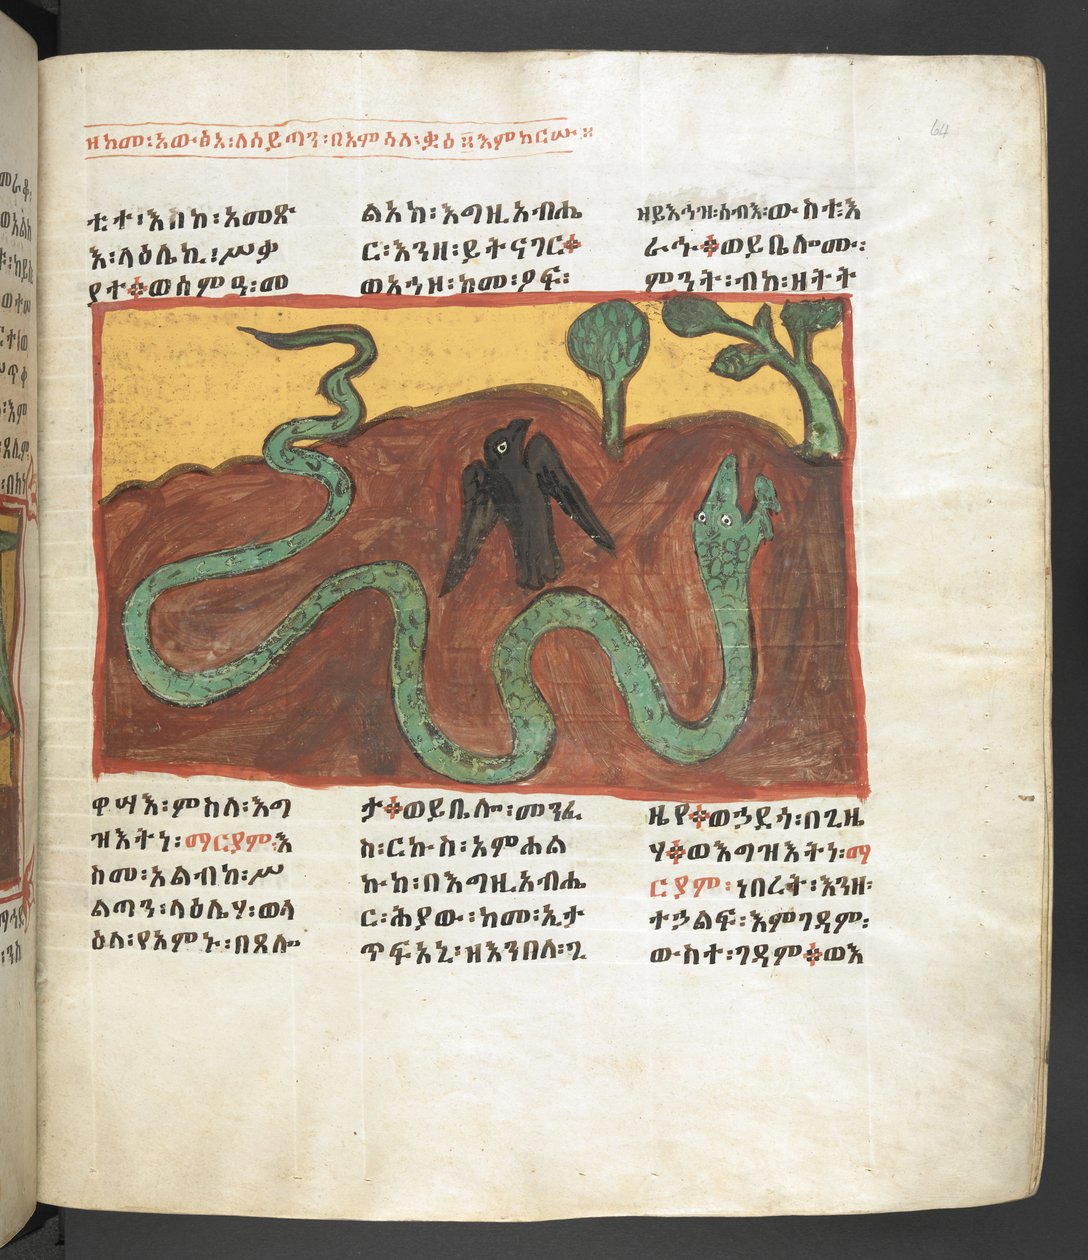 ዘከመ፡አውፅአ፡ለሰይጣን፡በአምሳለ፡ቋዕ።እምከርሡ።
ቲተ፡እስከ፡አመጽ
እ፡ላዕሌኪ፡ሥቃ
የተ፨ወሰምዓ፡መ
ልአከ፡እግዚአብሔ
ር፡እንዘ፡ይትናገር፨
ወአኀዘ፡ከመ፡ዖፍ፡
ዘይእኅዝ፡ሰብእ፡ውስተ፡እ
ራኁ፨ወይቤሎሙ፡
ምንት፡ብከ፡ዘትት
ዋሣእ፡ምስለ፡እግ
ዝእትነ፡ማርያም፡እ
ስመ፡አልብከ፡ሥ
ልጣን፡ላዕሌሃ፡ወላ
ዕለ፡የአምኑ፡በጸሎ
ታ፨ወይቤሎ፡መንፈ
ስ፡ርኩስ፡አምሐል
ኩከ፡በእግዚአብሔ
ር፡ሕያው፡ከመ፡ኢታ
ጥፍአኒ፡ዘእንበለ፡ጊ
ዜየ፨ወኃደጎ፡በጊዜ
ሃ፨ወእግዝእትነ፡ማ
ርያም፡ነበረት፡እንዘ፡
ተኃልፍ፡እምገዳም፡
ውስተ፡ገዳም፨ወእ
64